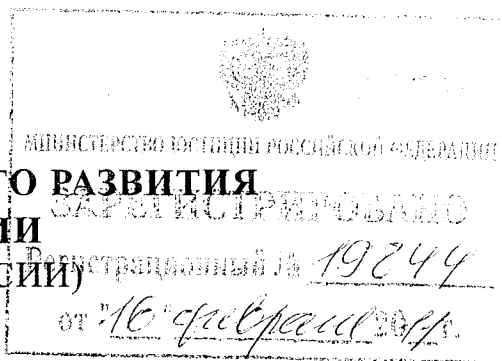 МИНИСТЕРСТВО ЮСТИЦИИ РОССИЙСКОЙ ФЕДЕРАЦИИ
ГО РАЗВИТИЯ
ЗАРЕГИСТРИРОВАНО
ИИ
Регистрационный № 19844
СИИ)
от "16" февраля 2011г.